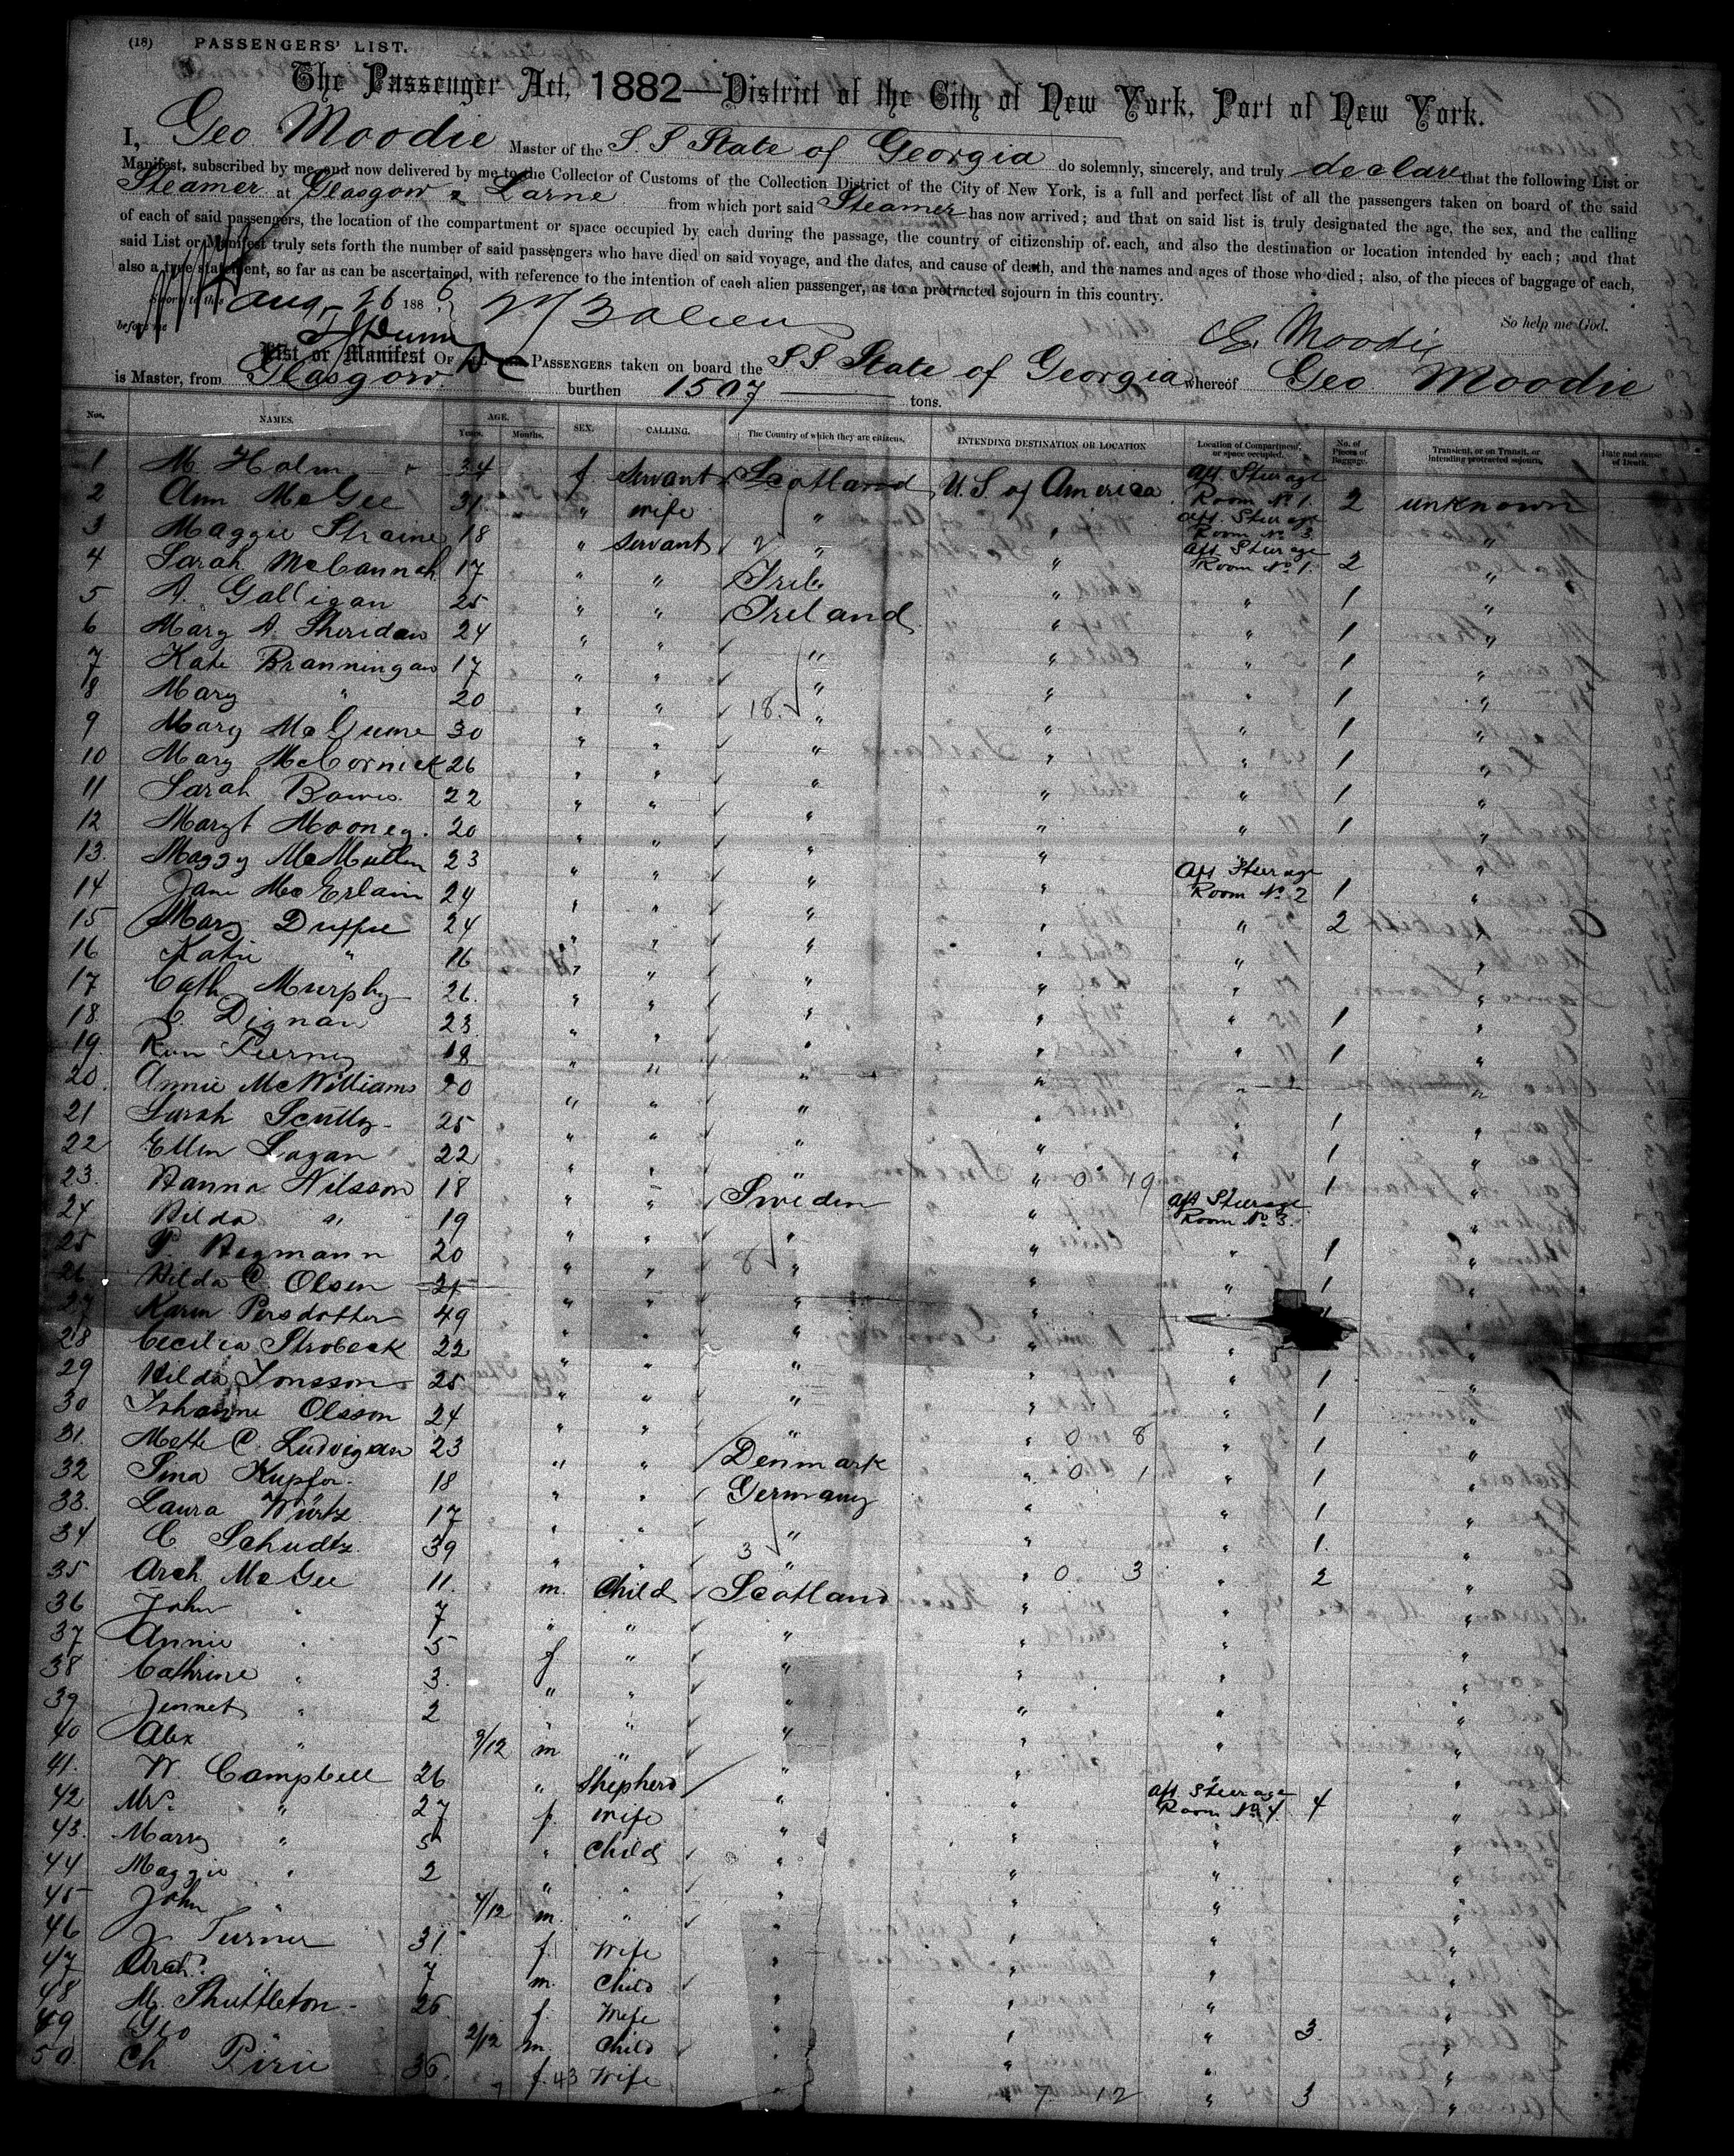 (18) PASSENGERS' LIST.
The Passenger Act, 1882—District of the City of New York, Port of New York.
I, Geo Moodie Master of the S.S State of Georgia do solemnly, sincerely, and truly declare that the following List or
Manifest, subscribed by me, and now delivered by me to the Collector of Customs of the Collection District of the City of New York, is a full and perfect list of all the passengers taken on board of the said
Steamer at Glasgow & Larne from which port said Steamer has now arrived; and that on said list is truly designated the age, the sex, and the calling
of each of said passengers, the location of the compartment or space occupied by each during the passage, the country of citizenship of each, and also the destination or location intended by each; and that
said List or Manifest truly sets forth the number of said passengers who have died on said voyage, and the dates, and cause of death, and the names and ages of those who died; also, of the pieces of baggage of each,
also a true statement, so far as can be ascertained, with reference to the intention of each alien passenger, as to a protracted sojourn in this country.
Sworn to this Aug 26 188 So help me God.
before me G. Moodie
List or Manifest OF PASSENGERS taken on board the S.S State of Georgia whereof Geo Moodie
is Master, from Glasgow burthen 1507 tons.
Nos. NAMES. AGE. Years. Months. SEX. CALLING. The Country of which they are citizens. INTENDING DESTINATION OR LOCATION Location of Compartment, or space occupied. No. of Pieces of Baggage. Transient, or on Transit, or intending protracted sojourn. Date and cause of Death.
1 M. Holm 34 f Servant Scotland U.S. of America Aft Steerage Room No 1 2 unknown
2 Ann McGee 31 " wife " " Aft. Steerage Room No 3 "
3 Maggie Straine 18 " Servant " " Aft Steerage Room No 1. 2 "
4 Sarah McCannah 17 " " " " 1 "
5 A. Galligan 25 " " Ireland " " 1 "
6 Mary A. Sheridan 24 " " " " " 1 "
7 Kate Branningan 17 " " " " " 1 "
8 Mary " 20 " " 18 " " " 1 "
9 Mary 30 " " " " " 1 "
10 Mary McCormick 26 " " " " " 1 "
11 Sarah 22 " " " " " 1 "
12 Margt Mooney. 20 " " " " "
13. Maggy McMullen 23 " " " " Aft Steerage Room No 2 1 "
14 Jane McErlain 24 " " " " " 2 "
15 Mary Duffie 24 " " " " " "
16 Katie " 16 " " " " " "
17 Cath Murphy 26. " " " " " 1 "
18. C. Dignan 23 " " " " " 1 "
19. Tierney 18 " " " " " "
20. Annie McWilliams 20 " " " " " 1 "
21 Sarah Scully 25 " " " " " 1 "
22 Ellen Logan 22 " " " " 0 19 " 1 "
23. Hanna Nilsson 18 " " Sweden Aft Steerage Room No 3 "
24 Hilda " 19 " " " " " 1 "
25 P. Hegmann 20 " " 8 " " " 1 "
26 Hilda C Olsen 21 " " " "
27 Karin Persdotter 49 " " " "
28 Cecilia Strobeck 22 " " " " " 1 "
29 Hilda Jonsson 25 " " " " " 1 "
30 Johanne Olsson 24 " " " " 0 8 " 1 "
31. Mette C. Ludvigsen 23 " " Denmark " 0 1 " 1 "
32 Sina Kupfer. 18 " " Germany " 1 "
33. Laura Würtz 17 " " " " " 1. "
34 C Schudtz. 39 " " 3 " " 0 3 " 2 "
35 Arch McGee 11. m. Child Scotland " " "
36 John " 7 " " " " " "
37 Annie " 5 f " " " " "
38 Cathrine " 3. " " " " " "
39 Jennet " 2 " " " " " "
40 Alex " 9/12 m " " " " "
41. W Campbell 26 " Shepherd " " Aft. Steerage Room No 4. 4 "
42 Mrs. " 27 f. wife " " " "
43. Marry " 5 " Child " " " "
44 Maggie " 2 " " " " " "
45 John " 4/12 m. " " " " "
46 J. Turner 31 f. Wife " " " "
47 Archd. " 7 m. Child " " " "
48 M. Shuttleton 26 f. Wife " " " 3. "
49 Geo 2/12 m. Child " " " "
50. Ch Pirie 36. f. 43 Wife " 7 12 " 3 "